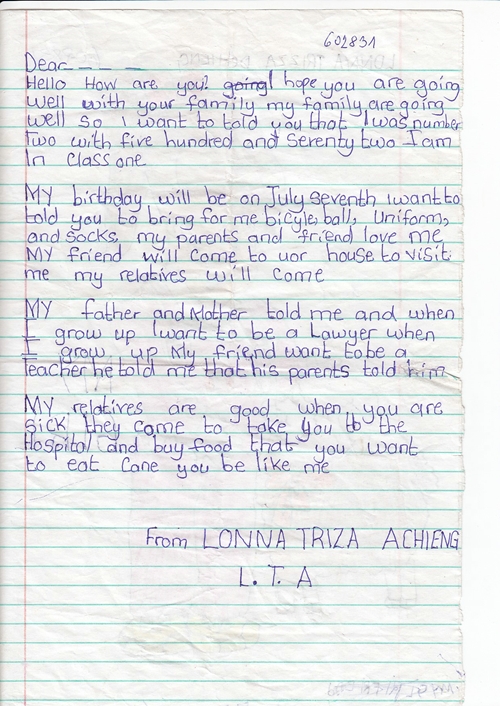 602831
Dear _ _ _ _
Hello How are you? hope you are going
well with your family my family are going
well so I want to told you that I was number
Two with five hundred and seventy two I am
In class one
MY birthday will be on July seventh I want to
told you to bring for me bicyle, ball, Uniform,
and socks, my parents and friend love me
MY friend will come to uor house to visit
me my relatives will come
MY father and Mother told me and when
I grow up I want to be a Lawyer when
I grow up My friend want to be a
teacher he told me that his parents told him
MY relatives are good when you are
sick they come to take you to the
Hospital and buy food that you want
to eat Cane you be like me
From LONNA TRIZA ACHIENG
L. T. A